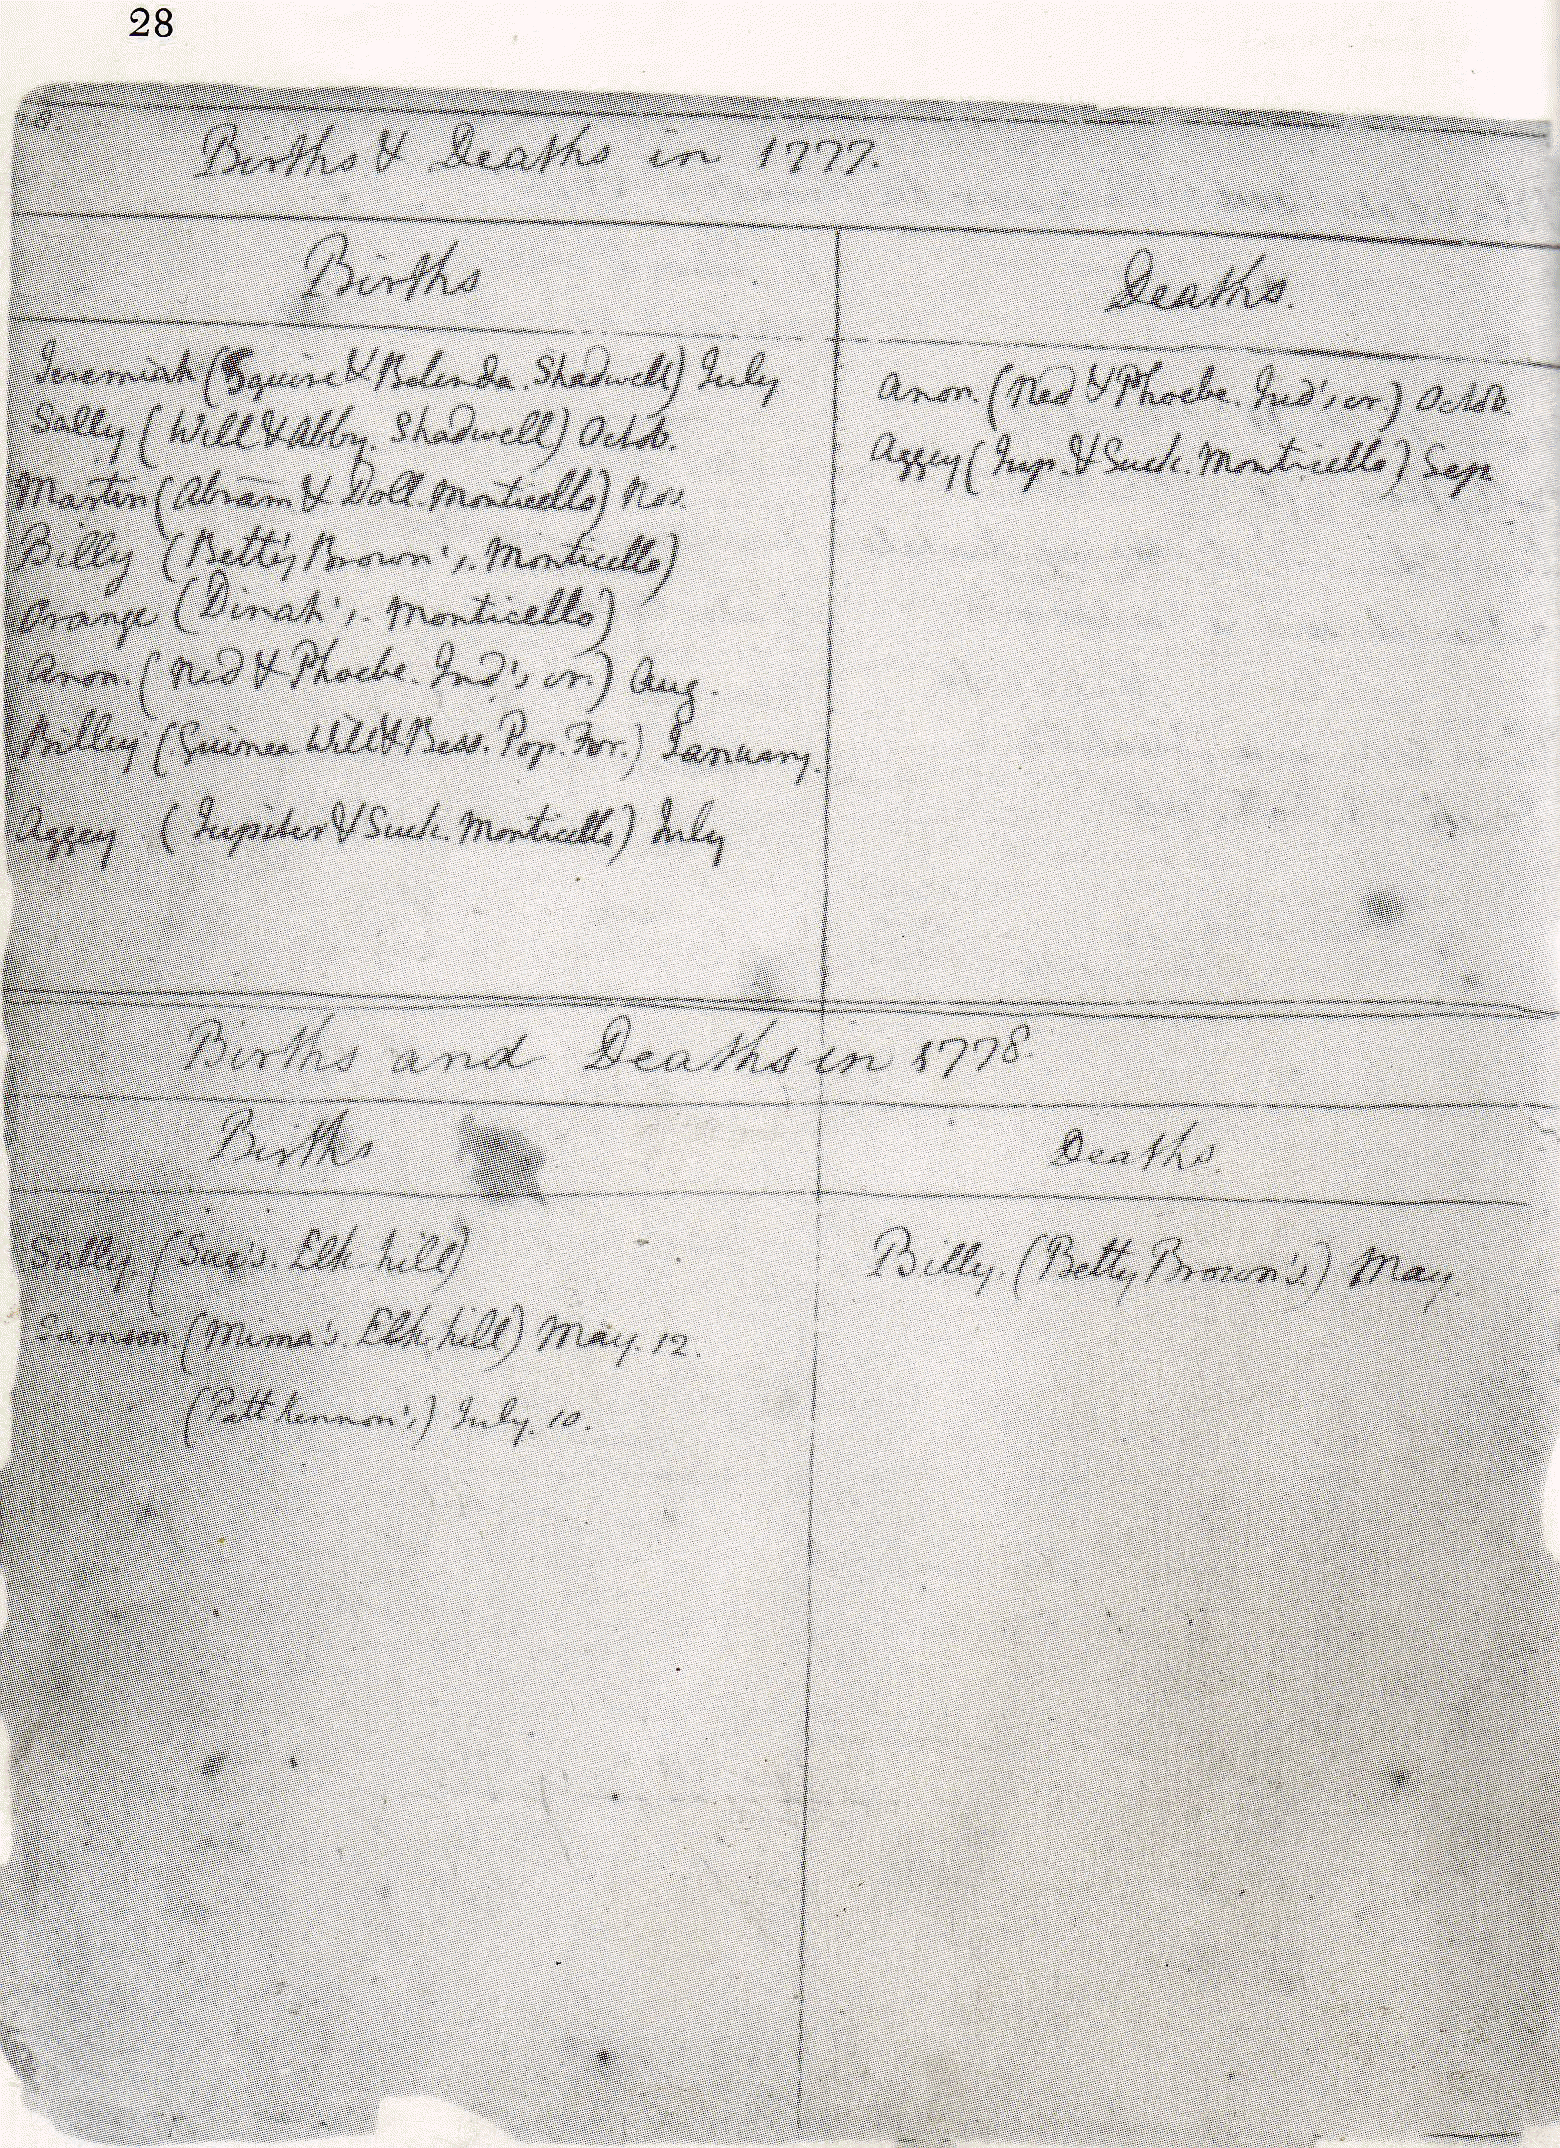 28
Births & Deaths in 1777.
Births
Deaths.
Jeremiah (Squire & Belinda. Shadwell) July
Sally (Will & Abby. Shadwell) Octob.
Martin (Abram & Doll. Monticello) Nov.
Billy (Betty Brown's. Monticello)
Orange (Dinah's. Monticello)
Anon. (Ned & Phoebe. Ind's cr.) Aug.
Billey (Guinea Will & Bess. Pop. For.) January.
Aggey (Jupiter & Suck. Monticello) July
Anon. (Ned & Phoebe. Ind's cr.) Octob.
Aggey (Jup. & Suck. Monticello) Sep.
Births and Deaths in 1778.
Births
Deaths.
Sally. (Sue's. Elk-hill)
Samson. (Mima's. Elk-hill) May. 12.
(Patt kennon's) July. 10.
Billy. (Betty Brown's.) May.